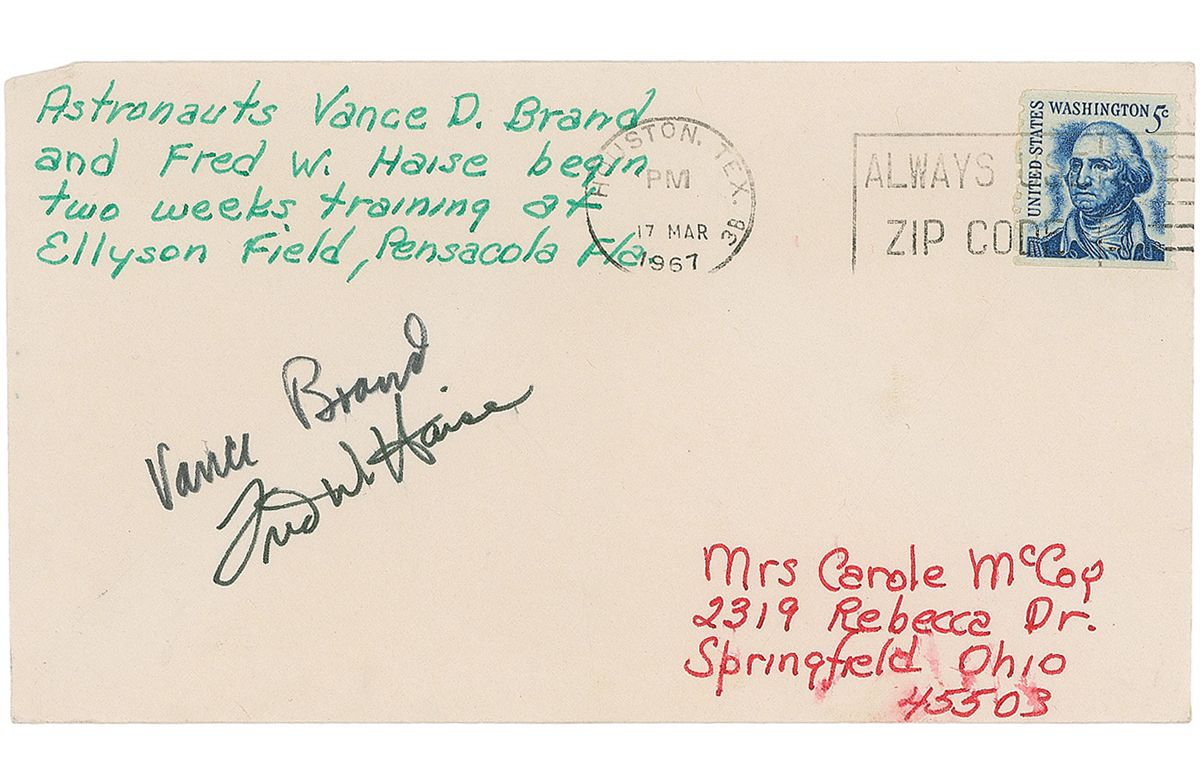 Astronauts Vance D. Brand
and Fred W. Haise begin
two weeks training at
Ellyson Field, Pensacola Fla.
HOUSTON, TEX. 38
PM
17 MAR
1967
ALWAYS
ZIP CODE
UNITED STATES
WASHINGTON 5c
Vance Brand
Fred W Haise
Mrs Carole McCoy
2319 Rebecca Dr.
Springfield Ohio
45503